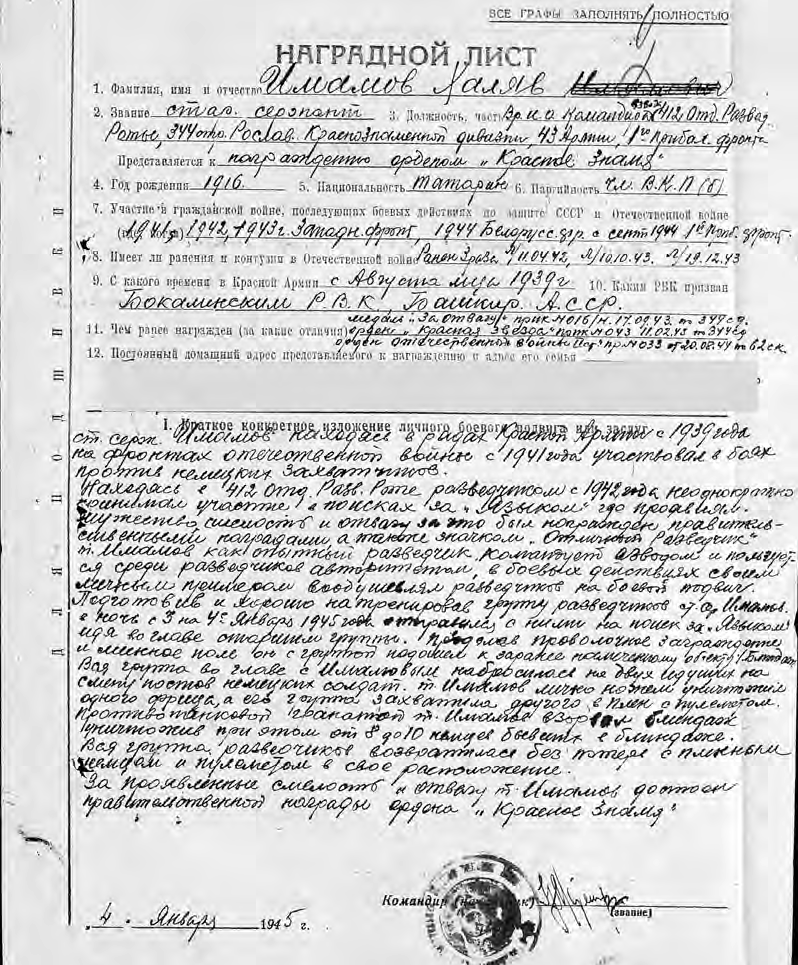 ВСЕ ГРАФЫ ЗАПОЛНЯТЬ ПОЛНОСТЬЮ
НАГРАДНОЙ ЛИСТ
1. Фамилия, имя и отчество Имамов Халяв
2. Звание стар. сержант 3. Должность, часть Вр.и.о. Командира взвода 412 Отд. Развед.
Роты, 344 отд. Рослав. Краснознаменной дивизии, 43 Армии, 1го Прибал. фронта
Представляется к награждению орденом „Красное Знамя"
4. Год рождения 1916. 5. Национальность Татарин 6. Партийность Чл. В.К.П(б)
7. Участие в гражданской войне, последующих боевых действиях по защите СССР и Отечественной войне
1941, 1942, 1943г. Западн. фронт, 1944 Белорусс. фр. с сент 1944 1й Приб. фронт.
8. Имеет ли ранения и контузии в Отечественной войне Ранен 3 раза 11.04.42, л/10.10.43. л/19.12.43
9. С какого времени в Красной Армии с Августа м-ца 1939г. 10. Каким РВК призван
Бакалинским Р.В.К. Башкир. А.С.С.Р.
медаль „За отвагу" прик №016/н. 17.09.43. по 344 сд.
11. Чем ранее награжден (за какие отличия) орден „Красная Звезда" прик №043 11.02.45 по 344 сд
орден отечественной войны IIст. пр №033 от 20.08.44 по 62 ск.
12. Постоянный домашний адрес представляемого к награждению и адрес его семьи
I. Краткое конкретное изложение личного боевого подвига или заслуг
ст. серж. Имамов находясь в рядах Красной Армии с 1939 года
на фронтах отечественной войны с 1941 года участвовал в боях
против немецких захватчиков.
Находясь в 412 Отд. Разв. Роте разведчиком с 1942 года неоднократно
принимал участие в поисках за „Языком" где проявлял
мужество, смелость и отвагу за что был награжден правитель-
ственными наградами а также значком „Отличный Разведчик"
т. Имамов как опытный разведчик командует взводом и пользует-
ся среди разведчиков авторитетом, в боевых действиях своим
личным примером воодушевлял разведчиков на боевой подвиг.
Подготовив и хорошо натренировав группу разведчиков ст. с. Имамов.
в ночь с 3 на 4е Января 1945 года отправился с ними на поиск за „Языком"
идя во главе старшим группы. Проделав проволочное заграждение
и минное поле он с группой подошел к заранее намеченному объекту /Блиндаж
Вся группа во главе с Имамовым набросилась на двух идущих на
смену постов немецких солдат. т. Имамов лично ножем уничтожил
одного фрица, а его группа захватила другого в плен с пулеметом.
Противотанковой гранатой т. Имамов взорвал блиндаж
уничтожив при этом от 8 до 10 немцев бывших в блиндаже.
Вся группа разведчиков возвратилась без потерь с пленным
немцем и пулеметом в свое расположение.
За проявленные смелость и отвагу т. Имамов достоен
правительственной награды ордена „Красное Знамя"
Командир (начальник)
(звание)
„4" Января 1945 г.